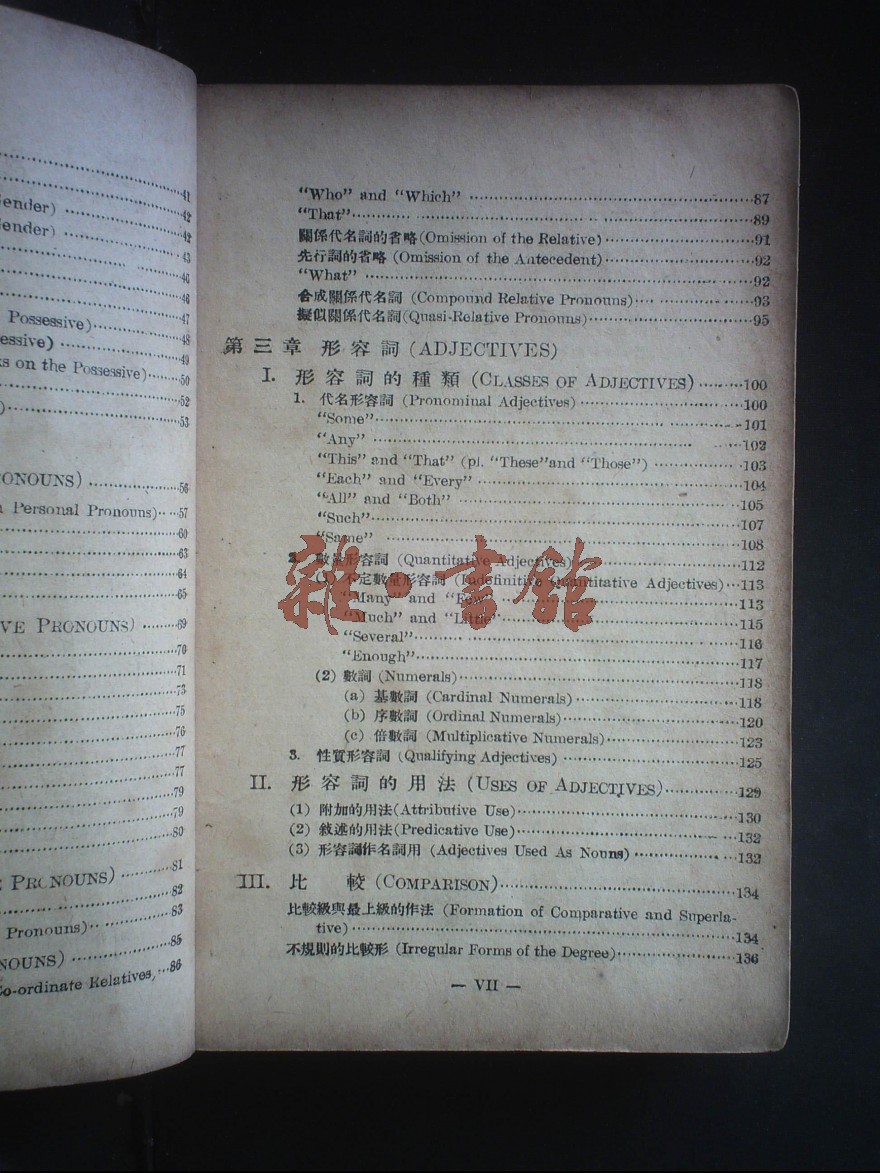 41
ender) 42
ender) 42
43
46
46
47
Possessive) 48
essive) 49
s on the Possessive) 50
52
) 53
ONOUNS) 56
Personal Pronouns) 57
60
63
64
65
VE PRONOUNS) 69
70
71
73
75
76
77
77
79
79
80
PRONOUNS) 81
82
Pronouns) 83
NOUNS) 85
Co-ordinate Relatives, 86
"Who" and "Which" 87
"That" 89
關係代名詞的省略 (Omission of the Relative) 91
先行詞的省略 (Omission of the Antecedent) 92
"What" 92
合成關係代名詞 (Compound Relative Pronouns) 93
擬似關係代名詞 (Quasi-Relative Pronouns) 95
第三章 形容詞 (ADJECTIVES)
I. 形容詞的種類 (CLASSES OF ADJECTIVES) 100
1. 代名形容詞 (Pronominal Adjectives) 100
"Some" 101
"Any" 102
"This" and "That" (pl. "These" and "Those") 103
"Each" and "Every" 104
"All" and "Both" 105
"Such" 107
"Same" 108
2. 數量形容詞 (Quantitative Adjectives) 112
(1) 不定數量形容詞 (Indefinitive Quantitative Adjectives) 113
"Many" and "Few" 113
"Much" and "Little" 115
"Several" 116
"Enough" 117
(2) 數詞 (Numerals) 118
(a) 基數詞 (Cardinal Numerals) 118
(b) 序數詞 (Ordinal Numerals) 120
(c) 倍數詞 (Multiplicative Numerals) 123
3. 性質形容詞 (Qualifying Adjectives) 125
II. 形容詞的用法 (USES OF ADJECTIVES) 129
(1) 附加的用法 (Attributive Use) 130
(2) 敘述的用法 (Predicative Use) 132
(3) 形容詞作名詞用 (Adjectives Used As Nouns) 132
III. 比較 (COMPARISON) 134
比較級與最上級的作法 (Formation of Comparative and Superla-
tive) 134
不規則的比較形 (Irregular Forms of the Degree) 136
— VII —
雜·書館